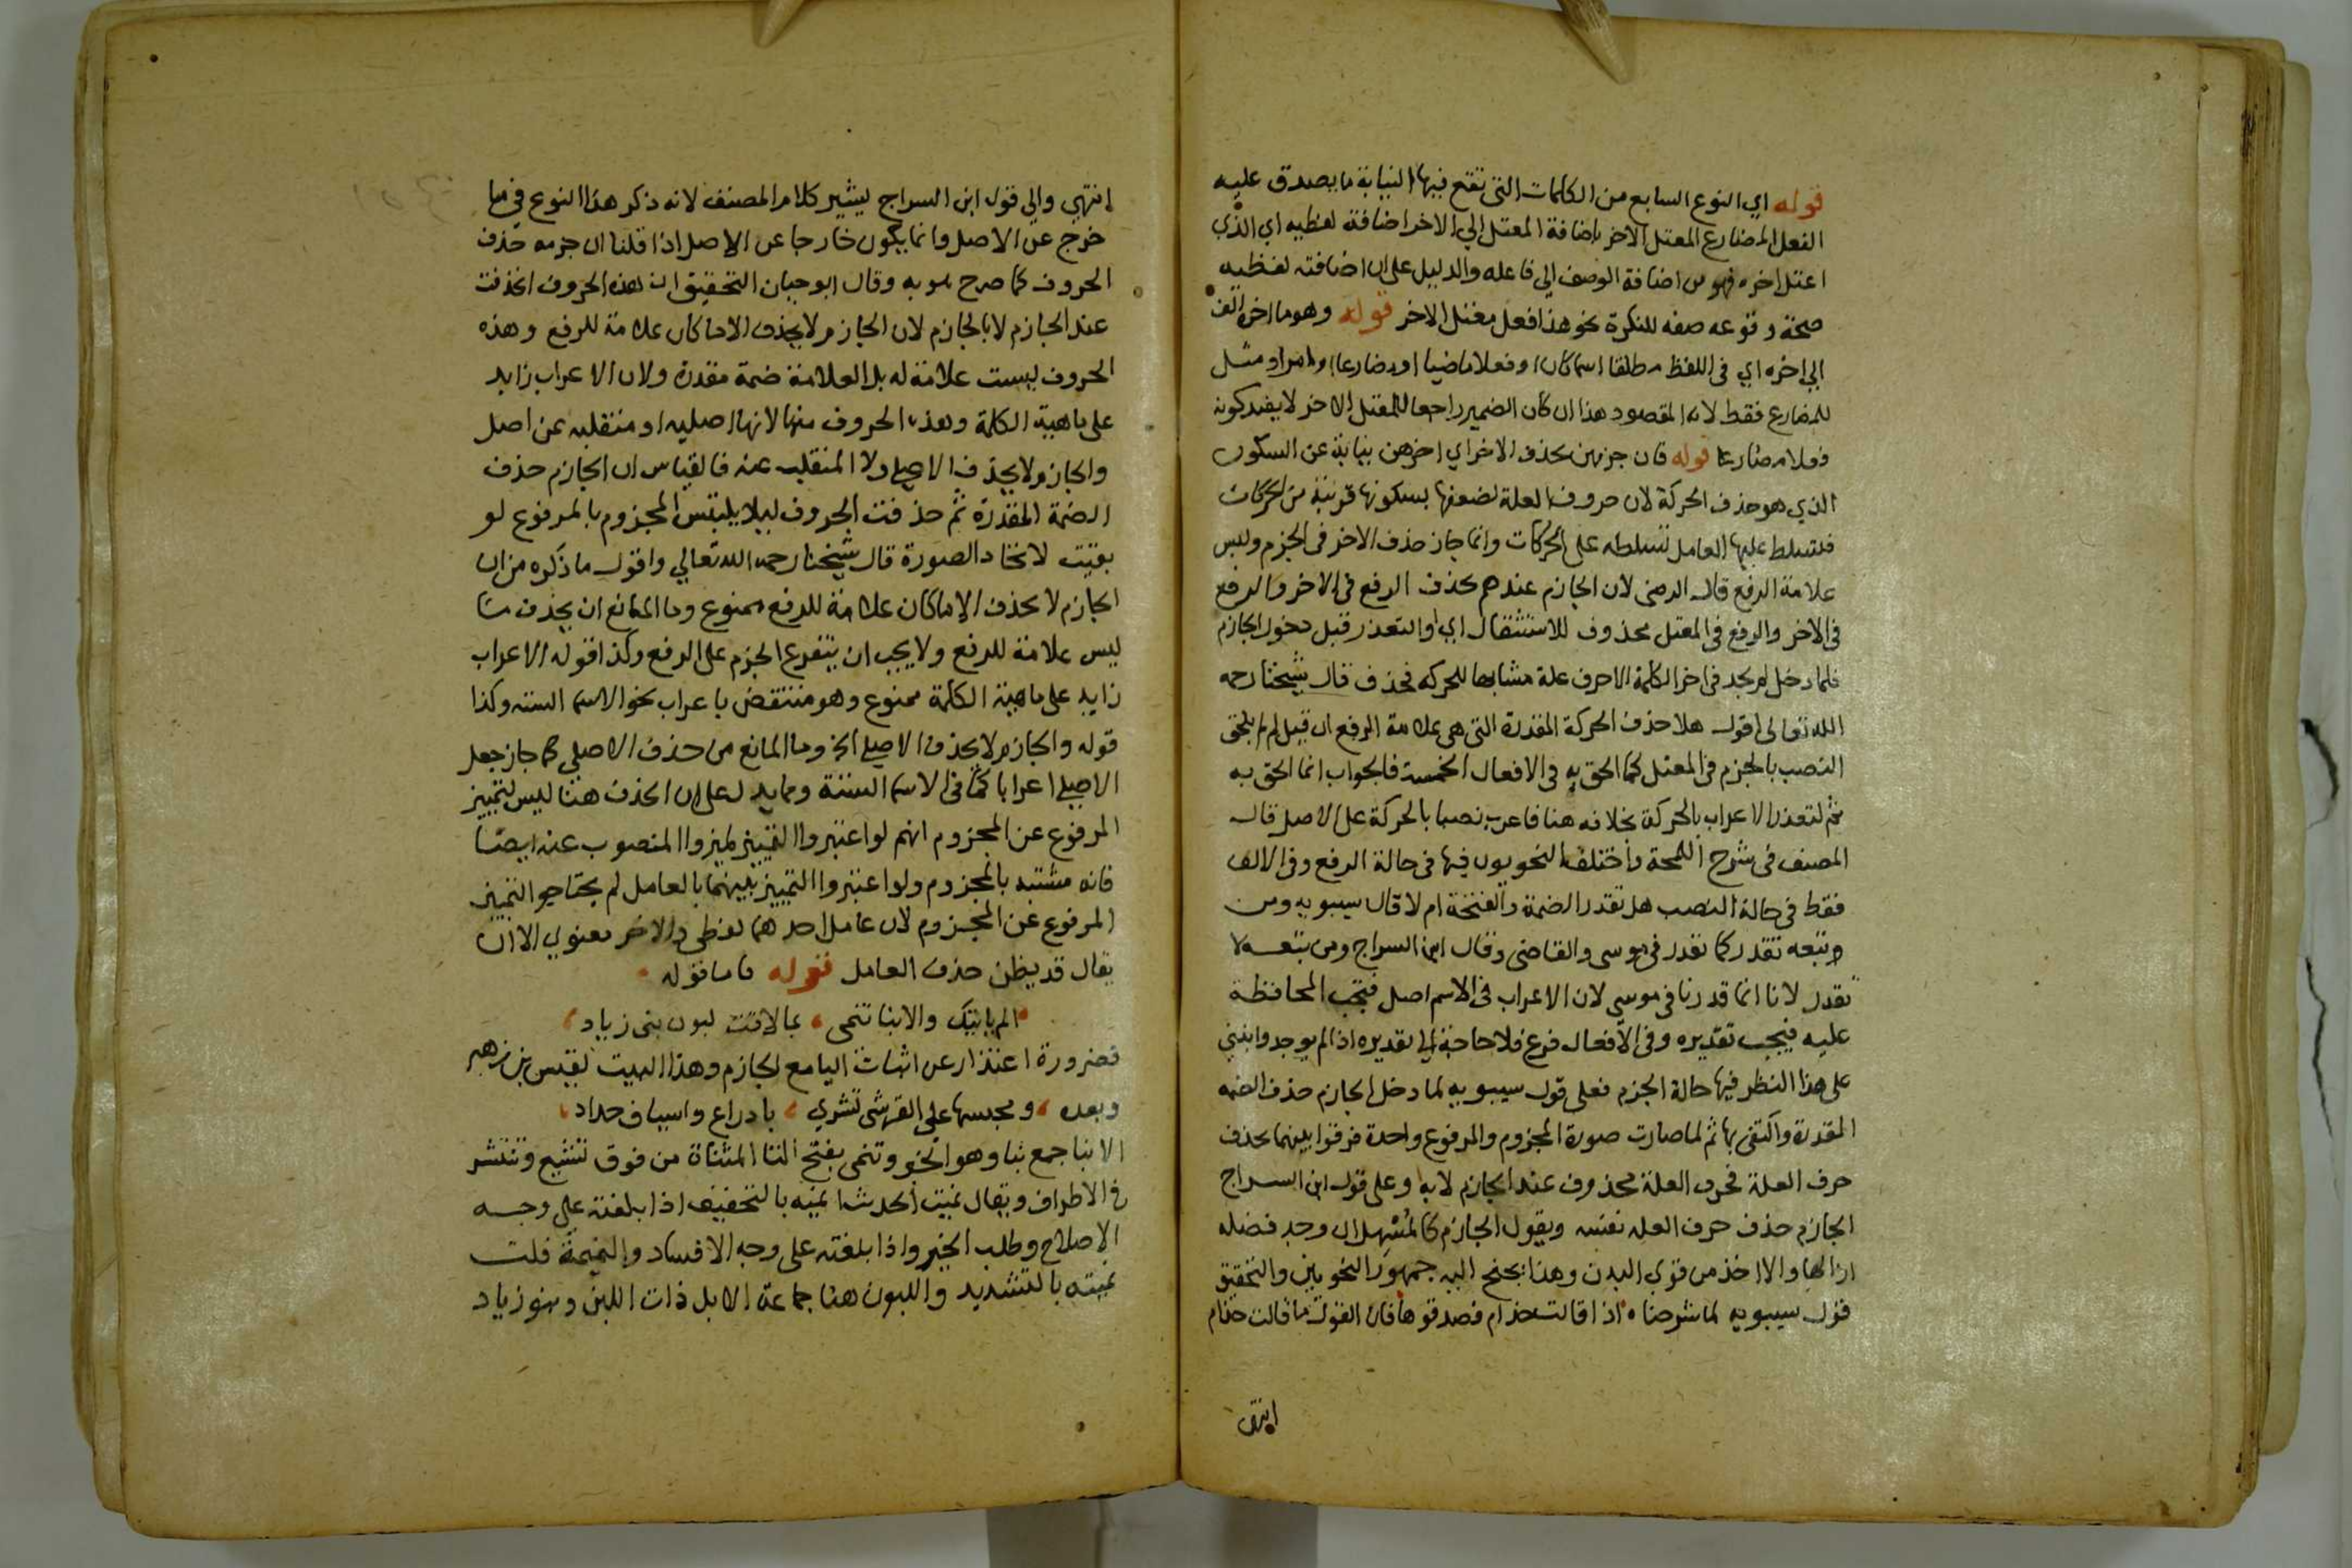 قوله اي النوع السابع من الكلمات التي تقع فيها النيابة ما يصدق عليه
الفعل المضارع المعتل الاخر باضافة المعتل الي الاخر اضافة لفظيه اي الذي
اعتل اخره فهو من اضافة الوصف الي فاعله والدليل على ان اضافته لفظيه
صحة وقوعه صفه للنكرة نحو هذا فعل معتل الاخر قوله وهو ما اخره الف
الي اخره اي في اللفظ مطلقا اسما كان او فعلا ماضيا او مضارعا او امرا ومثل
للمضارع فقط لانه المقصود هذا ان كان الضمير راجعا للمعتل الاخر لا بقيد كونه
فعلا مضارعا قوله فان جزمهن بحذف الاخر اي اخرهن نيابة عن السكون
الذي هو حذف الحركة لان حروف العلة لضعفها بسكونها قريبة من الحركات
فتسلط عليها العامل تسلطه على الحركات وانما جاز حذف الاخر في الجزم وليس
علامة الرفع قال الرضى لان الجازم عندهم يحذف الرفع في الاخر والرفع
في الاخر والرفع في المعتل محذوف للاستثقال اي او التعذر قبل دخول الجازم
فلما دخل لم يجد في اخر الكلمة الا حرف علة مشابها للحركه فحذف قال شيخنا رحمه
الله تعالى اقول هلا حذف الحركة المقدرة التي هي علامة الرفع ان قيل لم لم يلحق
النصب بالجزم في المعتل كما الحق به في الافعال الخمسة فالجواب انما الحق به
ثم لتعذر الاعراب بالحركة بخلافه هنا فاعرب نصبا بالحركة على الاصل قال
المصنف في شرح اللمحة واختلف النحويون فيها في حالة الرفع وفي الالف
فقط في حالة النصب هل تقدر الضمة والفتحة ام لا قال سيبويه ومن
وتبعه تقدر كما تقدر في موسى والقاضى وقال ابن السراج ومن تبعه لا
تقدر لانا انما قدرنا في موسي لان الاعراب في الاسم اصل فتجب المحافظة
عليه فيجب تقديره وفي الافعال فرع فلا حاجة الي تقديره اذا لم يوجد وابتني
على هذا النظر فيها حالة الجزم فعلى قول سيبويه لما دخل الجازم حذف الضمه
المقدرة واكتفى بها ثم لما صارت صورة المجزوم والمرفوع واحدة فرقوا بينهما بحذف
حرف العلة فحرف العلة محذوف عند الجازم لا به وعلى قول ابن السراج
الجازم حذف حرف العله نفسه ويقول الجازم كالمسهل ان وجد فضله
ازالها والا اخذ من قوي البدن وهذا يجنح اليه جمهور النحويين والتحقيق
قول سيبويه لما شرحناه اذا قالت حذام فصدقوها فان القول ما قالت حذام
انتهى
انتهى والي قول ابن السراج يشير كلام المصنف لانه ذكر هذا النوع في ما
خرج عن الاصل وانما يكون خارجا عن الاصل اذا قلنا ان جزمه حذف
الحروف كما صرح هو به وقال ابو حيان التحقيق ان هذه الحروف انحذفت
عند الجازم لا بالجازم لان الجازم لا يحذف الا ما كان علامة للرفع وهذه
الحروف ليست علامة له بل العلامة ضمة مقدرة ولان الاعراب زايد
على ماهية الكلمة وهذه الحروف منها لانها اصليه او منقلبه عن اصل
والجازم لا يحذف الاصلي ولا المنقلب عنه فالقياس ان الجازم حذف
الضمة المقدرة ثم حذفت الحروف ليلا يلتبس المجزوم بالمرفوع لو
بقيت لاتحاد الصورة قال شيخنا رحمه الله تعالي واقول ما ذكره من ان
الجازم لا يحذف الا ما كان علامة للرفع ممنوع وما المانع ان يحذف ما
ليس علامة للرفع ولا يجب ان يتفرع الجزم على الرفع وكذا قوله الاعراب
زايد على ماهية الكلمة ممنوع وهو منتقض باعراب نحو الاسما الستة وكذا
قوله والجازم لا يحذف الاصلي الخ وما المانع من حذف الاصلي كما جاز جعل
الاصلي اعرابا كما في الاسما الستة ومما يدل على ان الحذف هنا ليس لتمييز
المرفوع عن المجزوم انهم لو اعتبروا التمييز لميزوا المنصوب عنه ايضا
فانه مشتبه بالمجزوم ولو اعتبروا التمييز بينهما بالعامل لم يحتاجوا التمييز
المرفوع عن المجزوم لان عامل احدهما لفظي والاخر معنوي الا ان
يقال قد يظن حذف العامل قوله فاما قوله
الم ياتيك والانبا تنمى، بما لاقت لبون بني زياد
فضرورة اعتذار عن اثبات اليا مع الجازم وهذا البيت لقيس بن زهير
وبعده، ومحبسها علي القرشى تشري، بادراع واسياف حداد
الانبا جمع نبا وهو الخبر وتنمى بفتح التا المثناة من فوق تشيع وتنتشر
في الاطراف ويقال نميت الحديث انميه بالتخفيف اذا بلغته على وجه
الاصلاح وطلب الخير واذا بلغته على وجه الافساد والنميمة قلت
نميته بالتشديد واللبون هنا جماعة الابل ذات اللبن وبنو زياد